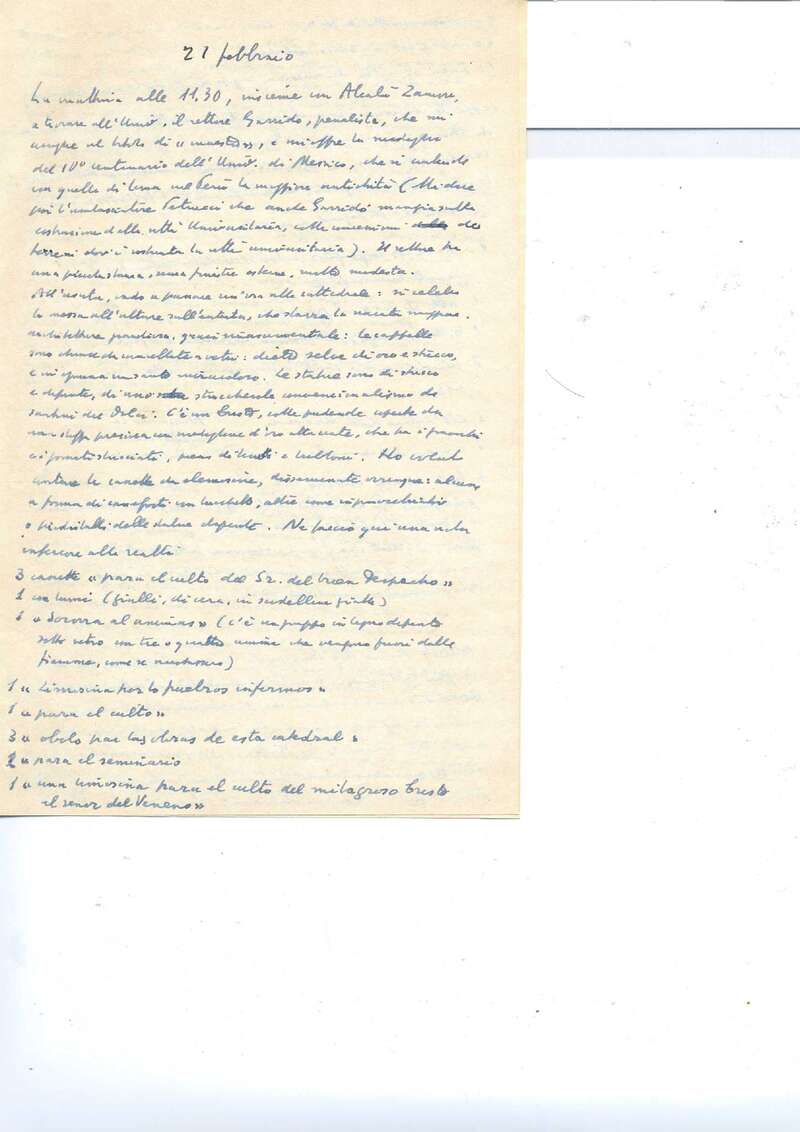 21 febbraio
La mattina alle 11.30, insieme con Alcalà Zamora,
a trovare all'Univ. il rettore Garrido, penalista, che mi
accoglie col titolo di «maestro», e mi offre la medaglia
del IVº centenario dell'Univ. di Messico, che si contende
con quella di Lima nel Perù la maggiore antichità (Mi dice
poi l'ambasciatore Petrucci che anche Garrido mangia sulla
costruzione della città Universitaria, colle concessioni dei
terreni dov'è costruita la città universitaria). Il rettore ha
una piccola stanza, senza finestre esterne, molto modesta.
All'uscita, vado a passare un'ora alla cattedrale: si celebra
la messa all'altare sull'entrata, che sbarra la navata maggiore.
Architettura grandiosa, monumentale: le cappelle
sono chiuse da cancellate a vetri: dietro selve di oro e stucco,
e in ognuna un santo miracoloro. Le statue sono di stucco
e dipinte, di uno stucchevole convenzionalismo da
santini del Dolci. C'è un Cristo, colle pudende coperte da
una stoffa preziosa con medaglione d'oro, che ha i ginocchi
e i gomiti sbucciati, pieni di e . Ho voluto
contare le cassette da elemosine, : alcune
a forma di casseforti con lucchetto, altre come inginocchiatoio
o piedistalli delle statue dipinte. Ne faccio qui una nota
inferiore alla realtà:
3 cassette «para el culto del Sr. del buen Despacho»
1 con lumi (gialli, di cera, in scodelline gialle)
1 «Socorra al animas» (c'è un gruppo in legno dipinto
sotto vetro con tre o quattro anime che vengono fuori dalle
fiamme, come se nuotassero)
1 «Limosina por lo puebros infermos»
1 «para el culto»
3 «obolo par las obras de esta catedral»
1 «para el seminario
1 «una limosina para el culto del milagroso Cristo
el señor del Veneno»